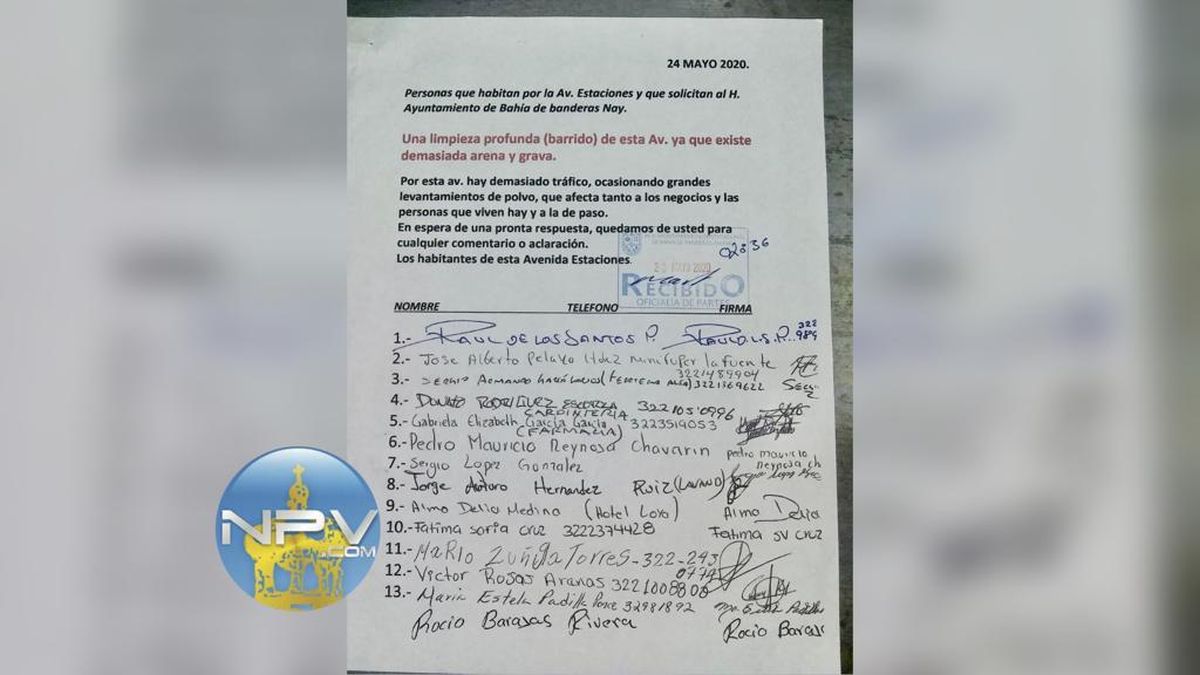 24 MAYO 2020.
Personas que habitan por la Av. Estaciones y que solicitan al H.
Ayuntamiento de Bahía de banderas Nay.
Una limpieza profunda (barrido) de esta Av. ya que existe
demasiada arena y grava.
Por esta av. hay demasiado tráfico, ocasionando grandes
levantamientos de polvo, que afecta tanto a los negocios y las
personas que viven hay y a la de paso.
En espera de una pronta respuesta, quedamos de usted para
cualquier comentario o aclaración.
Los habitantes de esta Avenida Estaciones.
RECIBIDO
OFICIALIA DE PARTES
NOMBRE TELEFONO FIRMA
1.- RAUL DE LOS SANTOS P. 322
2.- Jose Alberto Pelayo Hdez minisuper la fuente
3221489904
3.- SERGIO ARMANDO 3221369622
4.- DONATO RODRIGUEZ 3221050996
CARPINTERIA
5.- Gabriela Elizabeth García García 3223519053
(FARMACIA)
6.- Pedro Mauricio Reynosa Chavarin pedro mauricio
reynosa ch
7.- Sergio Lopez Gonzalez
8.- Jorge Arturo Hernandez Ruiz (LAVAND)
9.- Alma Delia Medina (Hotel Loro) Alma Delia
10.- Fatima soria cruz 3222374428 Fatima sv cruz
11.- MaRIO Zuñiga Torres - 322-293
0774
12.- Victor Rosas Aranas 3221008808
13.- Maria Estela Padilla Ponce 32981892
Rocio Barajas Rivera Rocio Baraj
NPV
.COM